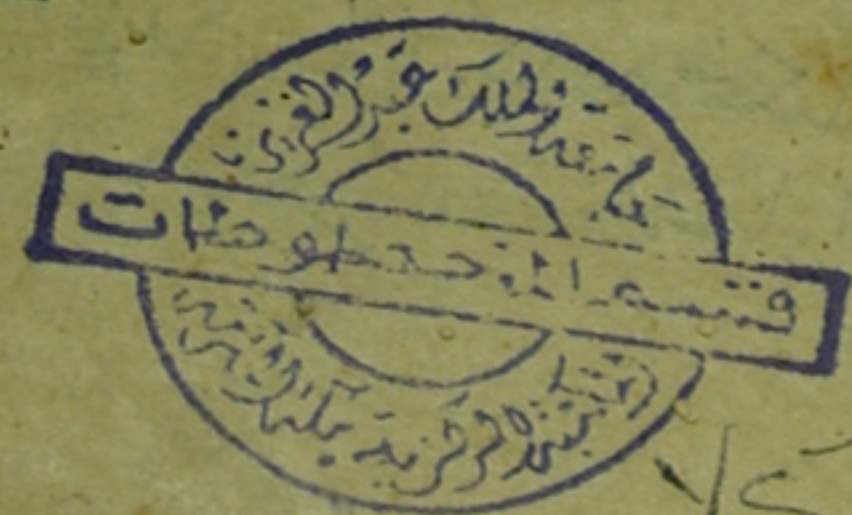 جامعة الملك عبد العزيز
قسم المخطوطات
المكتبة المركزية بمكة